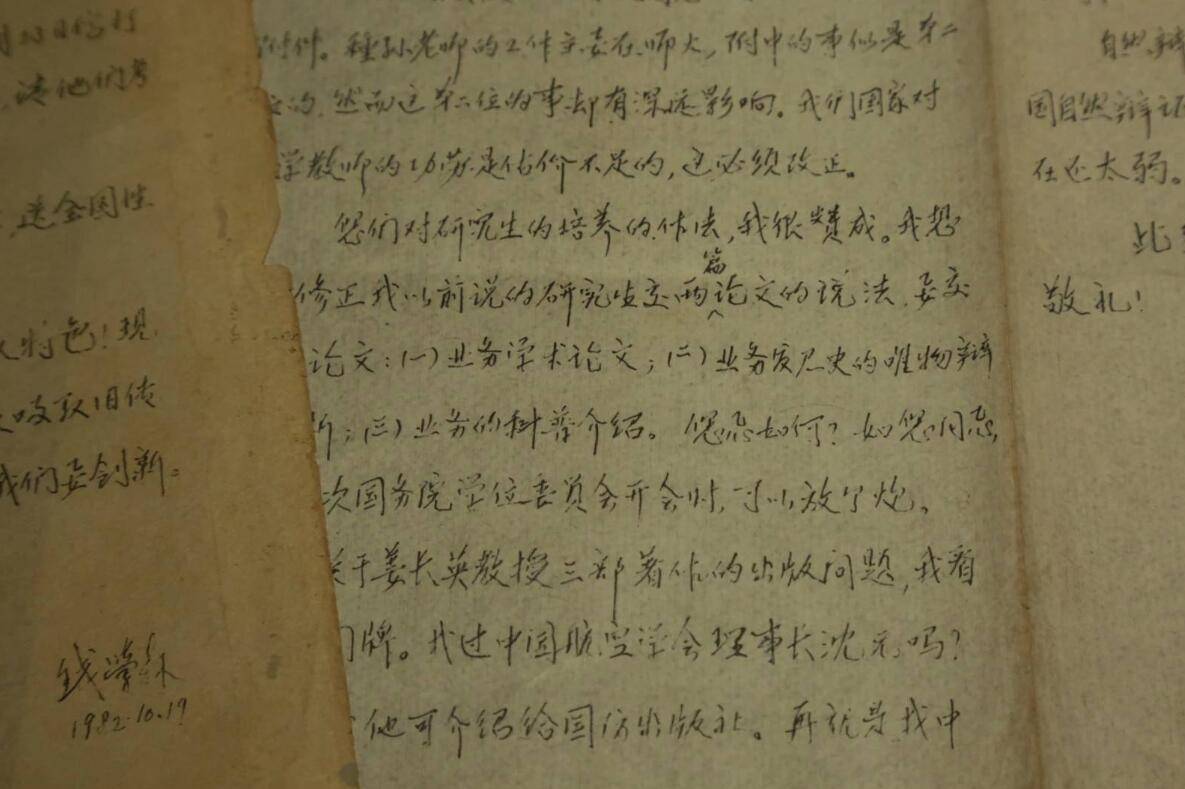 请他们考
送全国性
特色！现
吸取旧传
我们要创新。
钱学森
1982.10.19
附件。种孙老师的工作主要在师大，附中的事似是第二
的，然而这第二位的事却有深远影响。我们国家对
学教师的功劳是估价不足的，这必须改正。
您们对研究生的培养的作法，我很赞成。我想
修正我以前说的研究生交两篇论文的说法，要交
论文：（一）业务学术论文；（二）业务发展史的唯物辩
；（三）业务的科普介绍。您意如何？如您同意，
次国务院学位委员会开会时，可以放个炮。
关于姜长英教授三部著作的出版问题，我看
门牌。找过中国航空学会理事长沈元吗？
他可介绍给国防出版社。再就是找中
自然辩
国自然辩证
在还太弱。
此
敬礼！